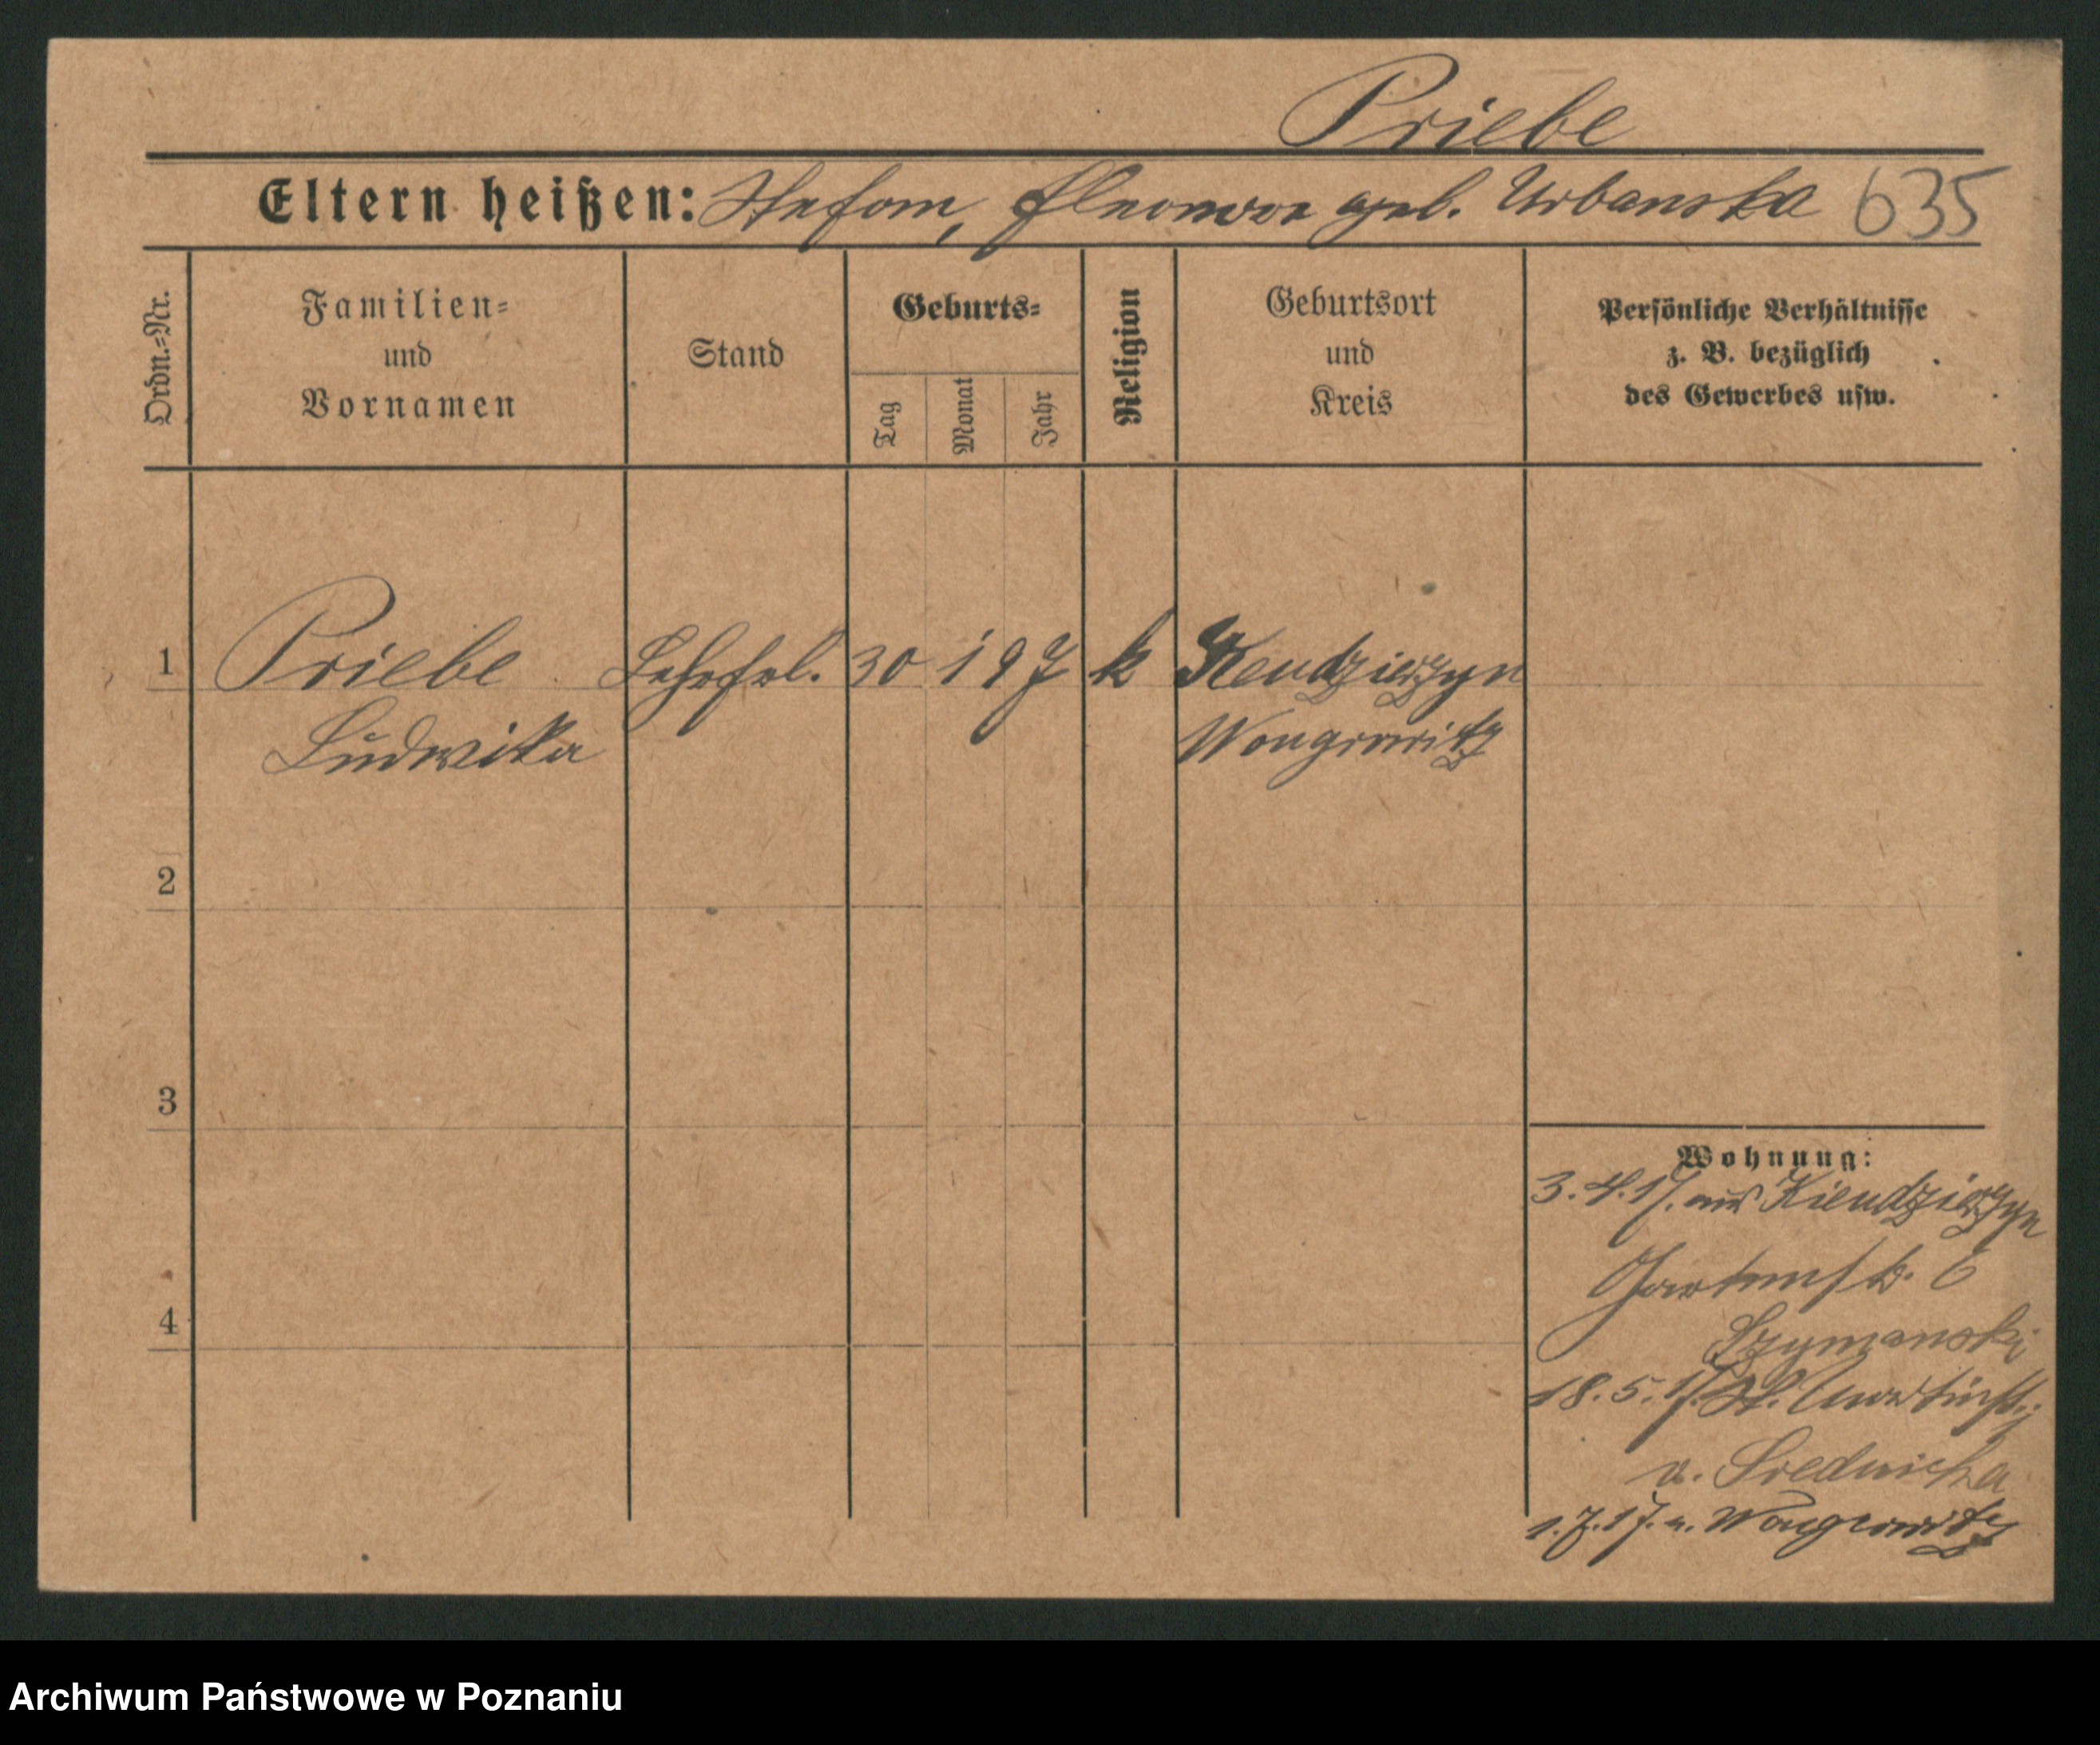 Priebe
Eltern heißen: Stefan, Eleonora geb. Urbanska 635
Ordn.-Nr.
Familien-
und
Vornamen
Stand
Geburts-
Tag
Monat
Jahr
Religion
Geburtsort
und
Kreis
Persönliche Verhältnisse
z. B. bezüglich
des Gewerbes usw.
1 Priebe Lehrfrl. 30 1 97 k Kendzierzyn
Ludwika Wongrowitz
2
3
4
Wohnung:
3.4.17. aus Kiendzierzyn
Gartenstr. 6
Szymanski
18.5.17. St.
v. Srednicka
1.7.17. n. Wongrowitz
Archiwum Państwowe w Poznaniu